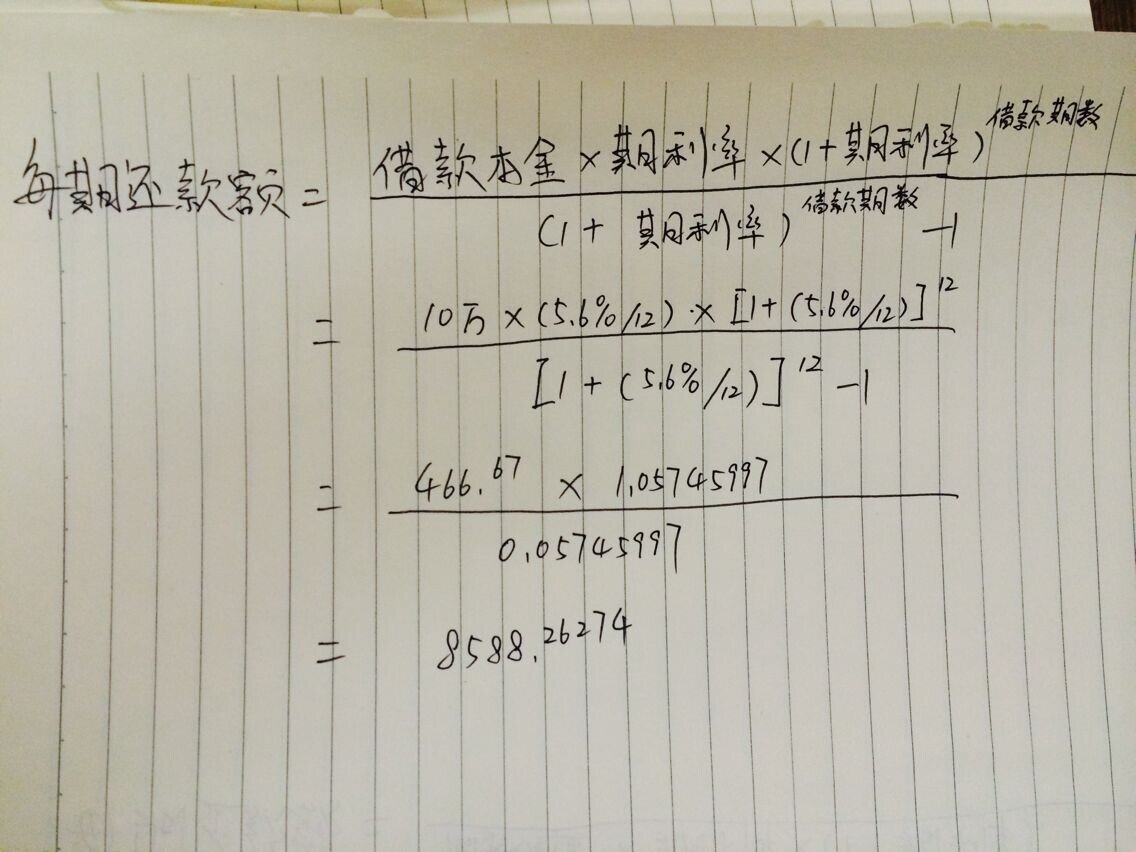 每期还款额 = 借款本金 × 期利率 × (1 + 期利率)^借款期数
(1 + 期利率)^借款期数 - 1
= 10万 × (5.6%/12) × [1 + (5.6%/12)]^12
[1 + (5.6%/12)]^12 - 1
= 466.67 × 1.05745997
0.05745997
= 8588.26274